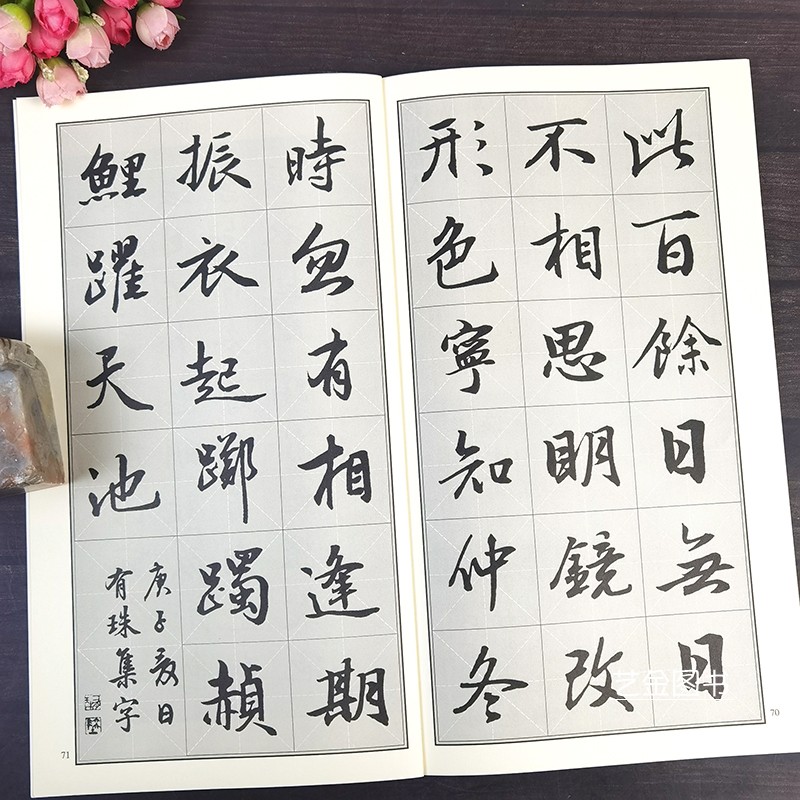 此百餘日無日
不相思明鏡改
形色寧知仲冬
70
時忽有相逢期
振衣起躑躅赬
鯉躍天池
庚子夏日
有珠集字
71
艺金图书